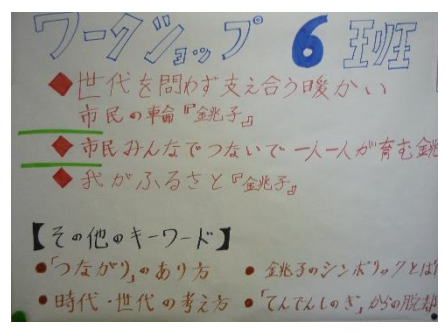 ワークショップ 6 班
◆世代を問わず支え合う暖かい
市民の輪『銚子』
◆市民みんなでつないで一人一人が育む銚
◆我がふるさと『銚子』
【その他のキーワード】
●「つながり」のあり方 ●銚子のシンボリックとは
●時代・世代の考え方 ●「てんでんしのぎ」からの脱却